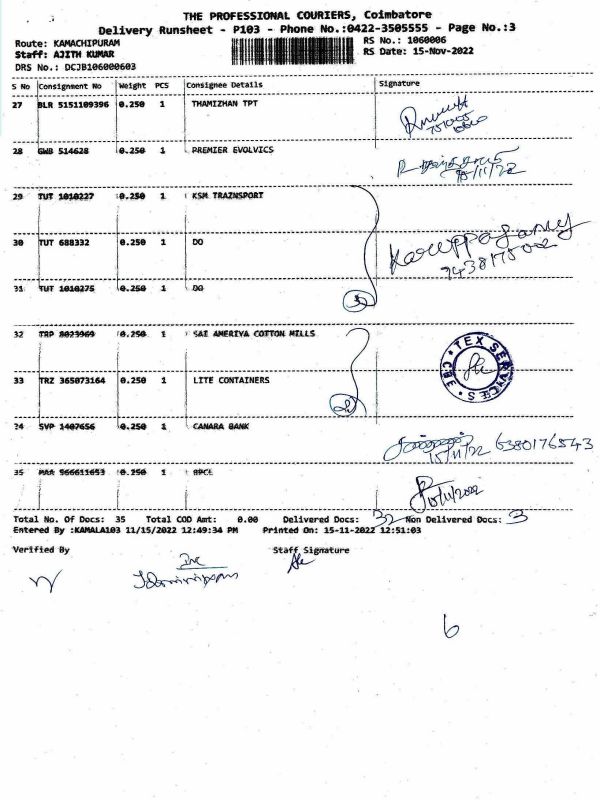 THE PROFESSIONAL COURIERS, Coimbatore
Delivery Runsheet - P103 - Phone No.:0422-3505555 - Page No.:3
Route: KAMACHIPURAM RS No.: 1060006
Staff: AJITH KUMAR RS Date: 15-Nov-2022
DRS No.: DCJB106000603
S No Consignment No Weight PCS Consignee Details Signature
27 BLR 5151109396 0.250 1 THAMIZHAN TPT
28 GWB 514628 0.250 1 PREMIER EVOLVICS
15/11/22
29 TUT 1010227 0.250 1 KSM TRAZNSPORT
30 TUT 688332 0.250 1 DO
31 TUT 1010275 0.250 1 DO
32 TRP 8023969 0.250 1 SAI AMERIYA COTTON MILLS
TEX SERVICES CBE
33 TRZ 365073164 0.250 1 LITE CONTAINERS
34 SVP 1407656 0.250 1 CANARA BANK
15/11/22 6380176543
35 MAA 566611653 0.250 1 BPCL
15/11/2022
Total No. Of Docs: 35 Total COD Amt: 0.00 Delivered Docs: 32 Non Delivered Docs: 3
Entered By :KAMALA103 11/15/2022 12:49:34 PM Printed On: 15-11-2022 12:51:03
Verified By Staff Signature
6